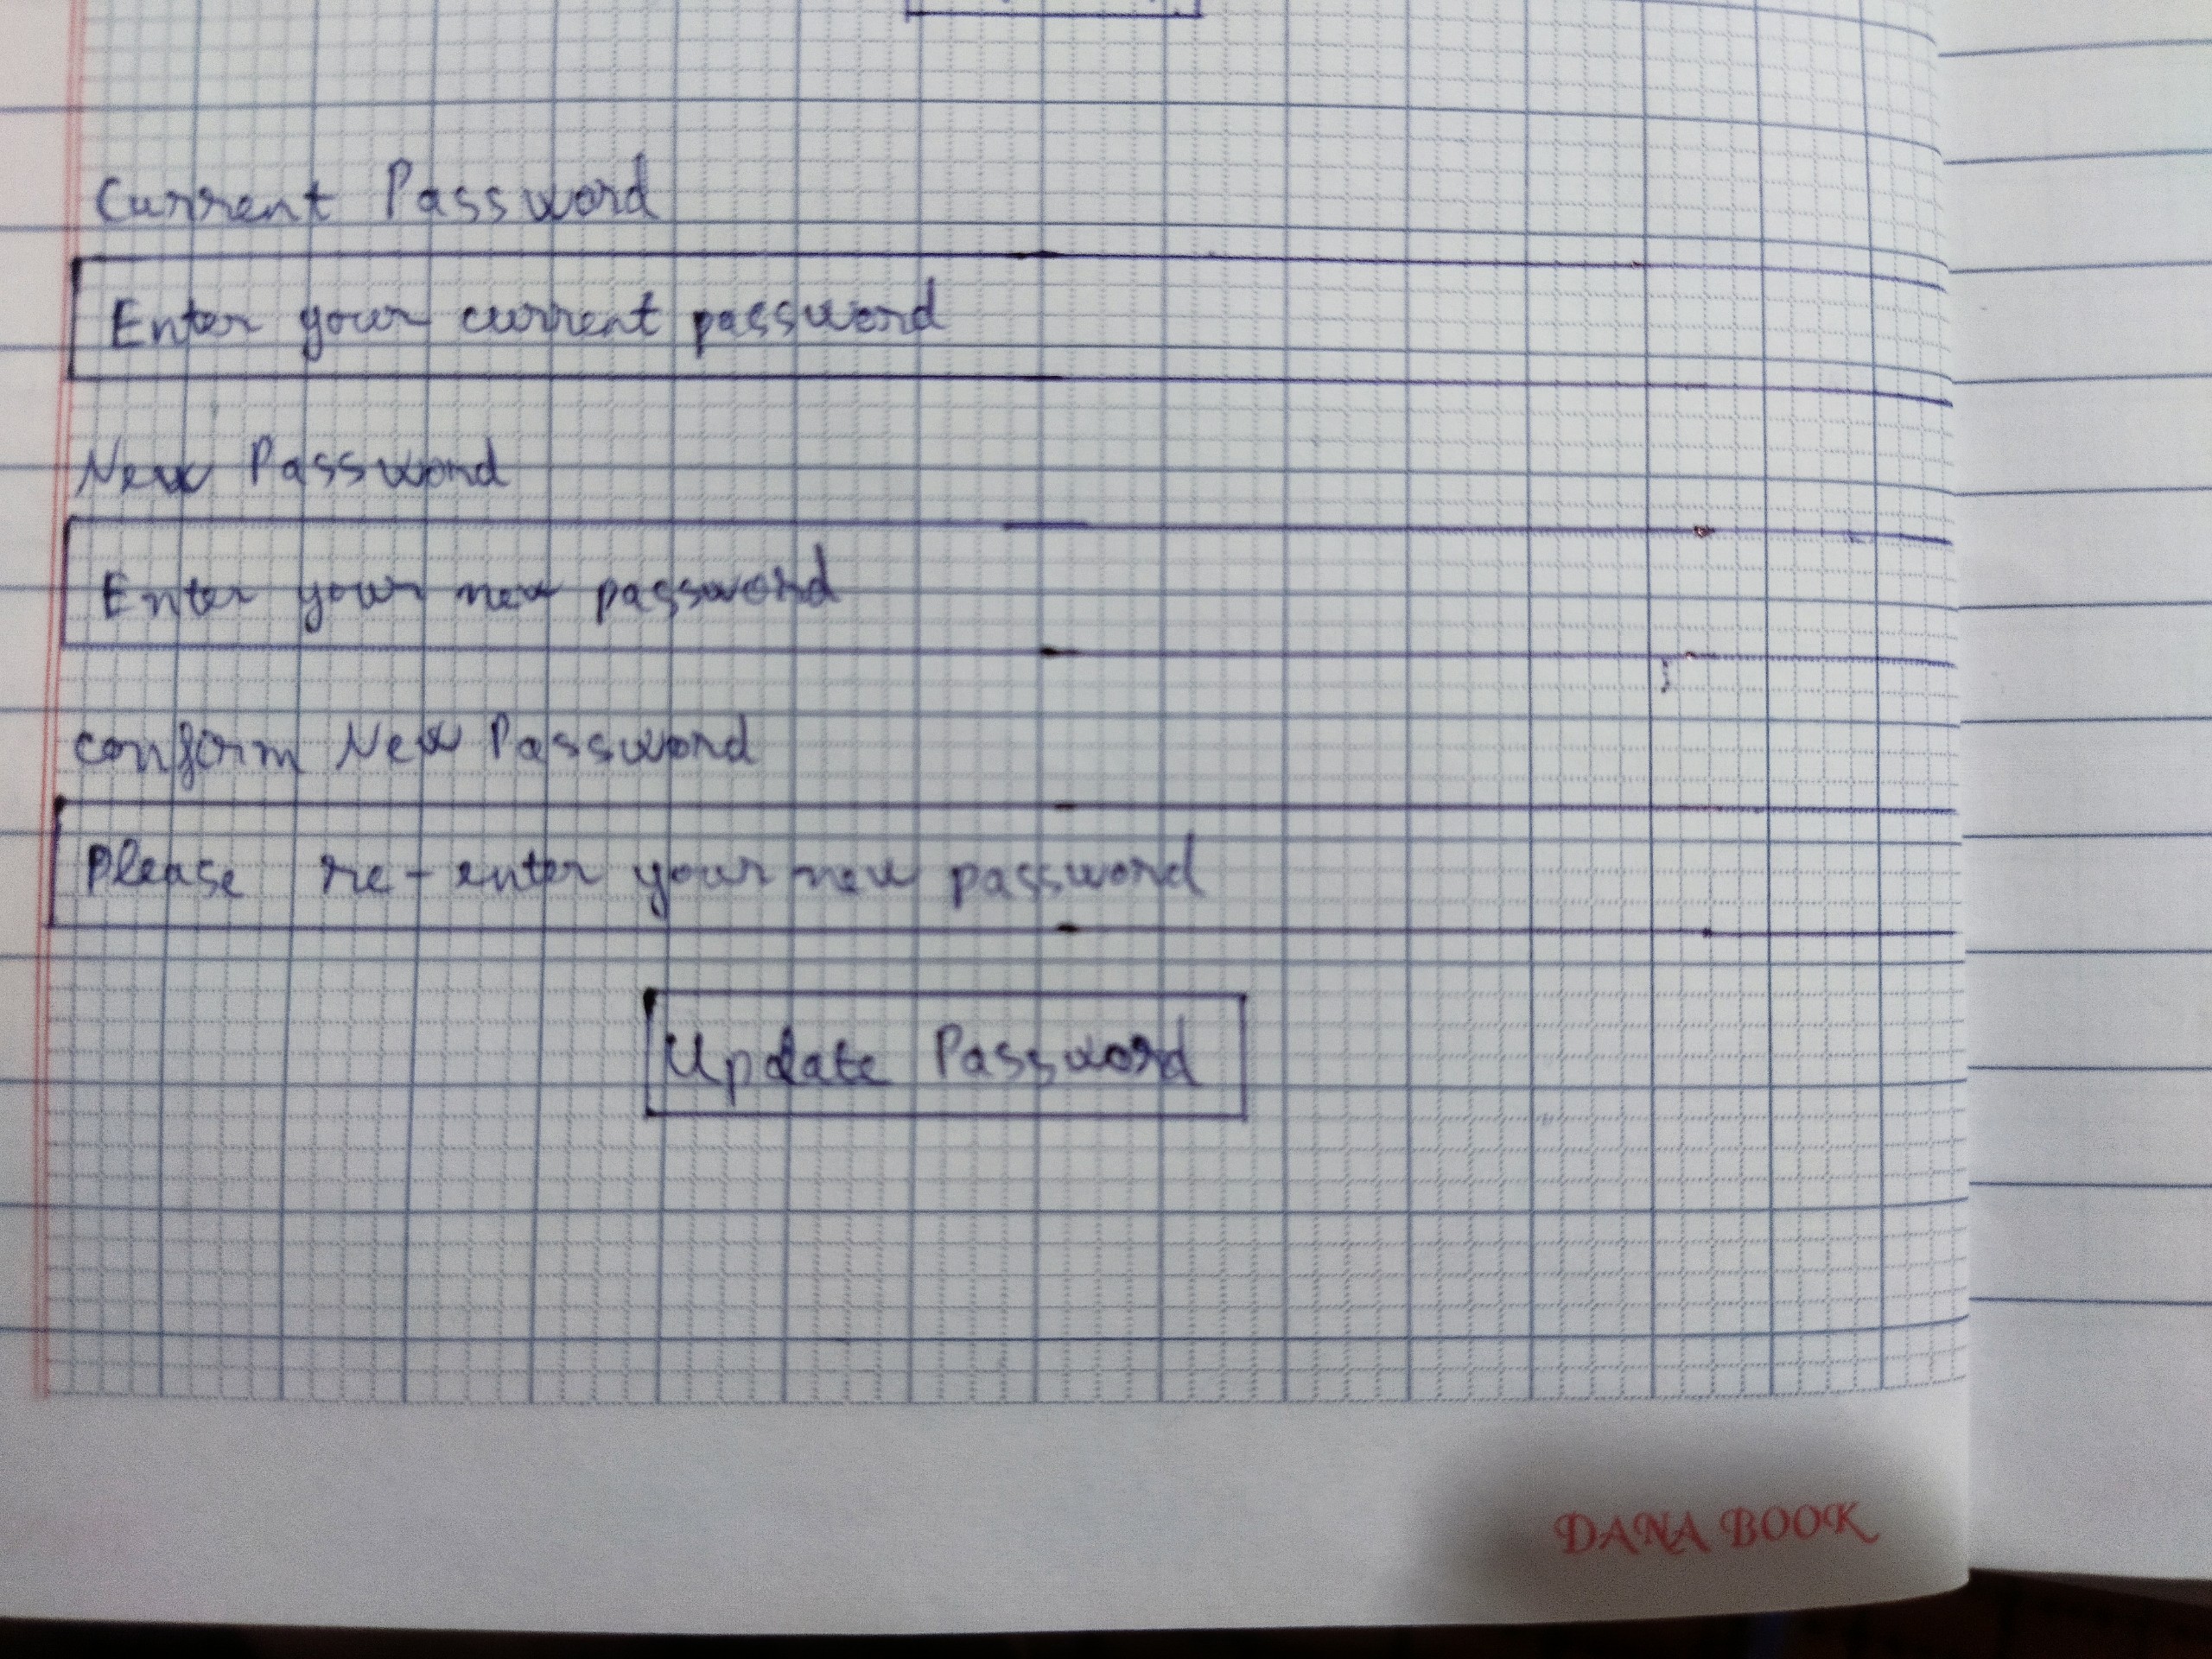 Current Password
Enter your current password
New Password
Enter your new password
confirm New Password
Please re-enter your new password
Update Password
DANA BOOK